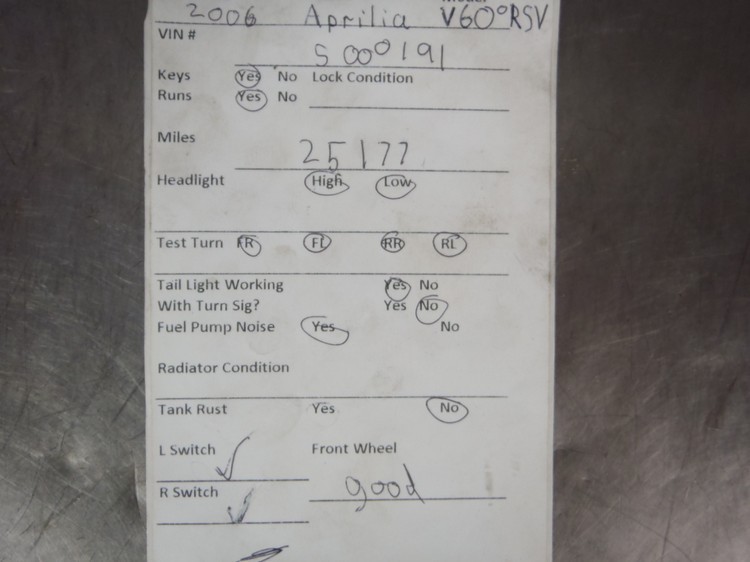 2006 Aprilia V60°RSV
VIN #
S000191
Keys Yes No Lock Condition
Runs Yes No
Miles
25177
Headlight High Low
Test Turn FR FL RR RL
Tail Light Working Yes No
With Turn Sig? Yes No
Fuel Pump Noise Yes No
Radiator Condition
Tank Rust Yes No
L Switch Front Wheel
good
R Switch